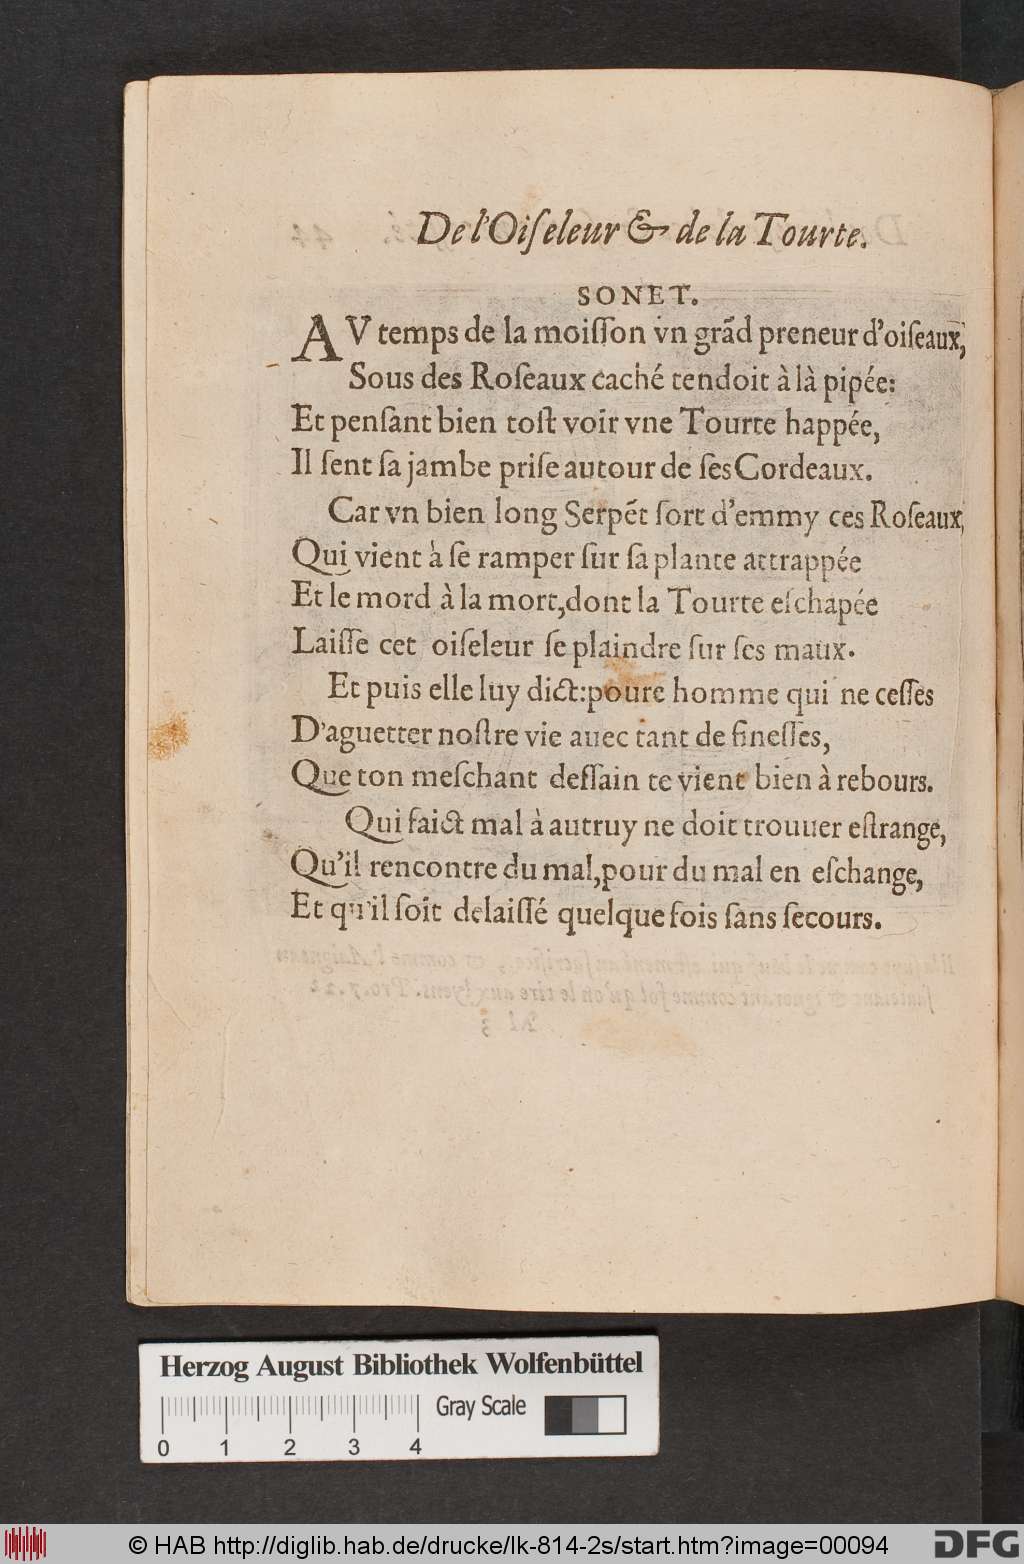 De l'Oiſeleur & de la Tourte.
SONET.
AV temps de la moiſſon vn grãd preneur d'oiſeaux,
Sous des Roſeaux caché tendoit à là pipée:
Et penſant bien toſt voir vne Tourte happée,
Il ſent ſa jambe priſe autour de ſes Cordeaux.
Car vn bien long Serpẽt ſort d'emmy ces Roſeaux,
Qui vient à ſe ramper ſur ſa plante attrappée
Et le mord à la mort, dont la Tourte eſchapée
Laiſſe cet oiſeleur ſe plaindre ſur ſes maux.
Et puis elle luy dict: poure homme qui ne ceſſes
D'aguetter noſtre vie auec tant de fineſſes,
Que ton meſchant deſſain te vient bien à rebours.
Qui faict mal à autruy ne doit trouuer eſtrange,
Qu'il rencontre du mal, pour du mal en eſchange,
Et qu'il ſoit delaiſſé quelque fois ſans ſecours.
Herzog August Bibliothek Wolfenbüttel
Gray Scale
0 1 2 3 4
© HAB http://diglib.hab.de/drucke/lk-814-2s/start.htm?image=00094
DFG